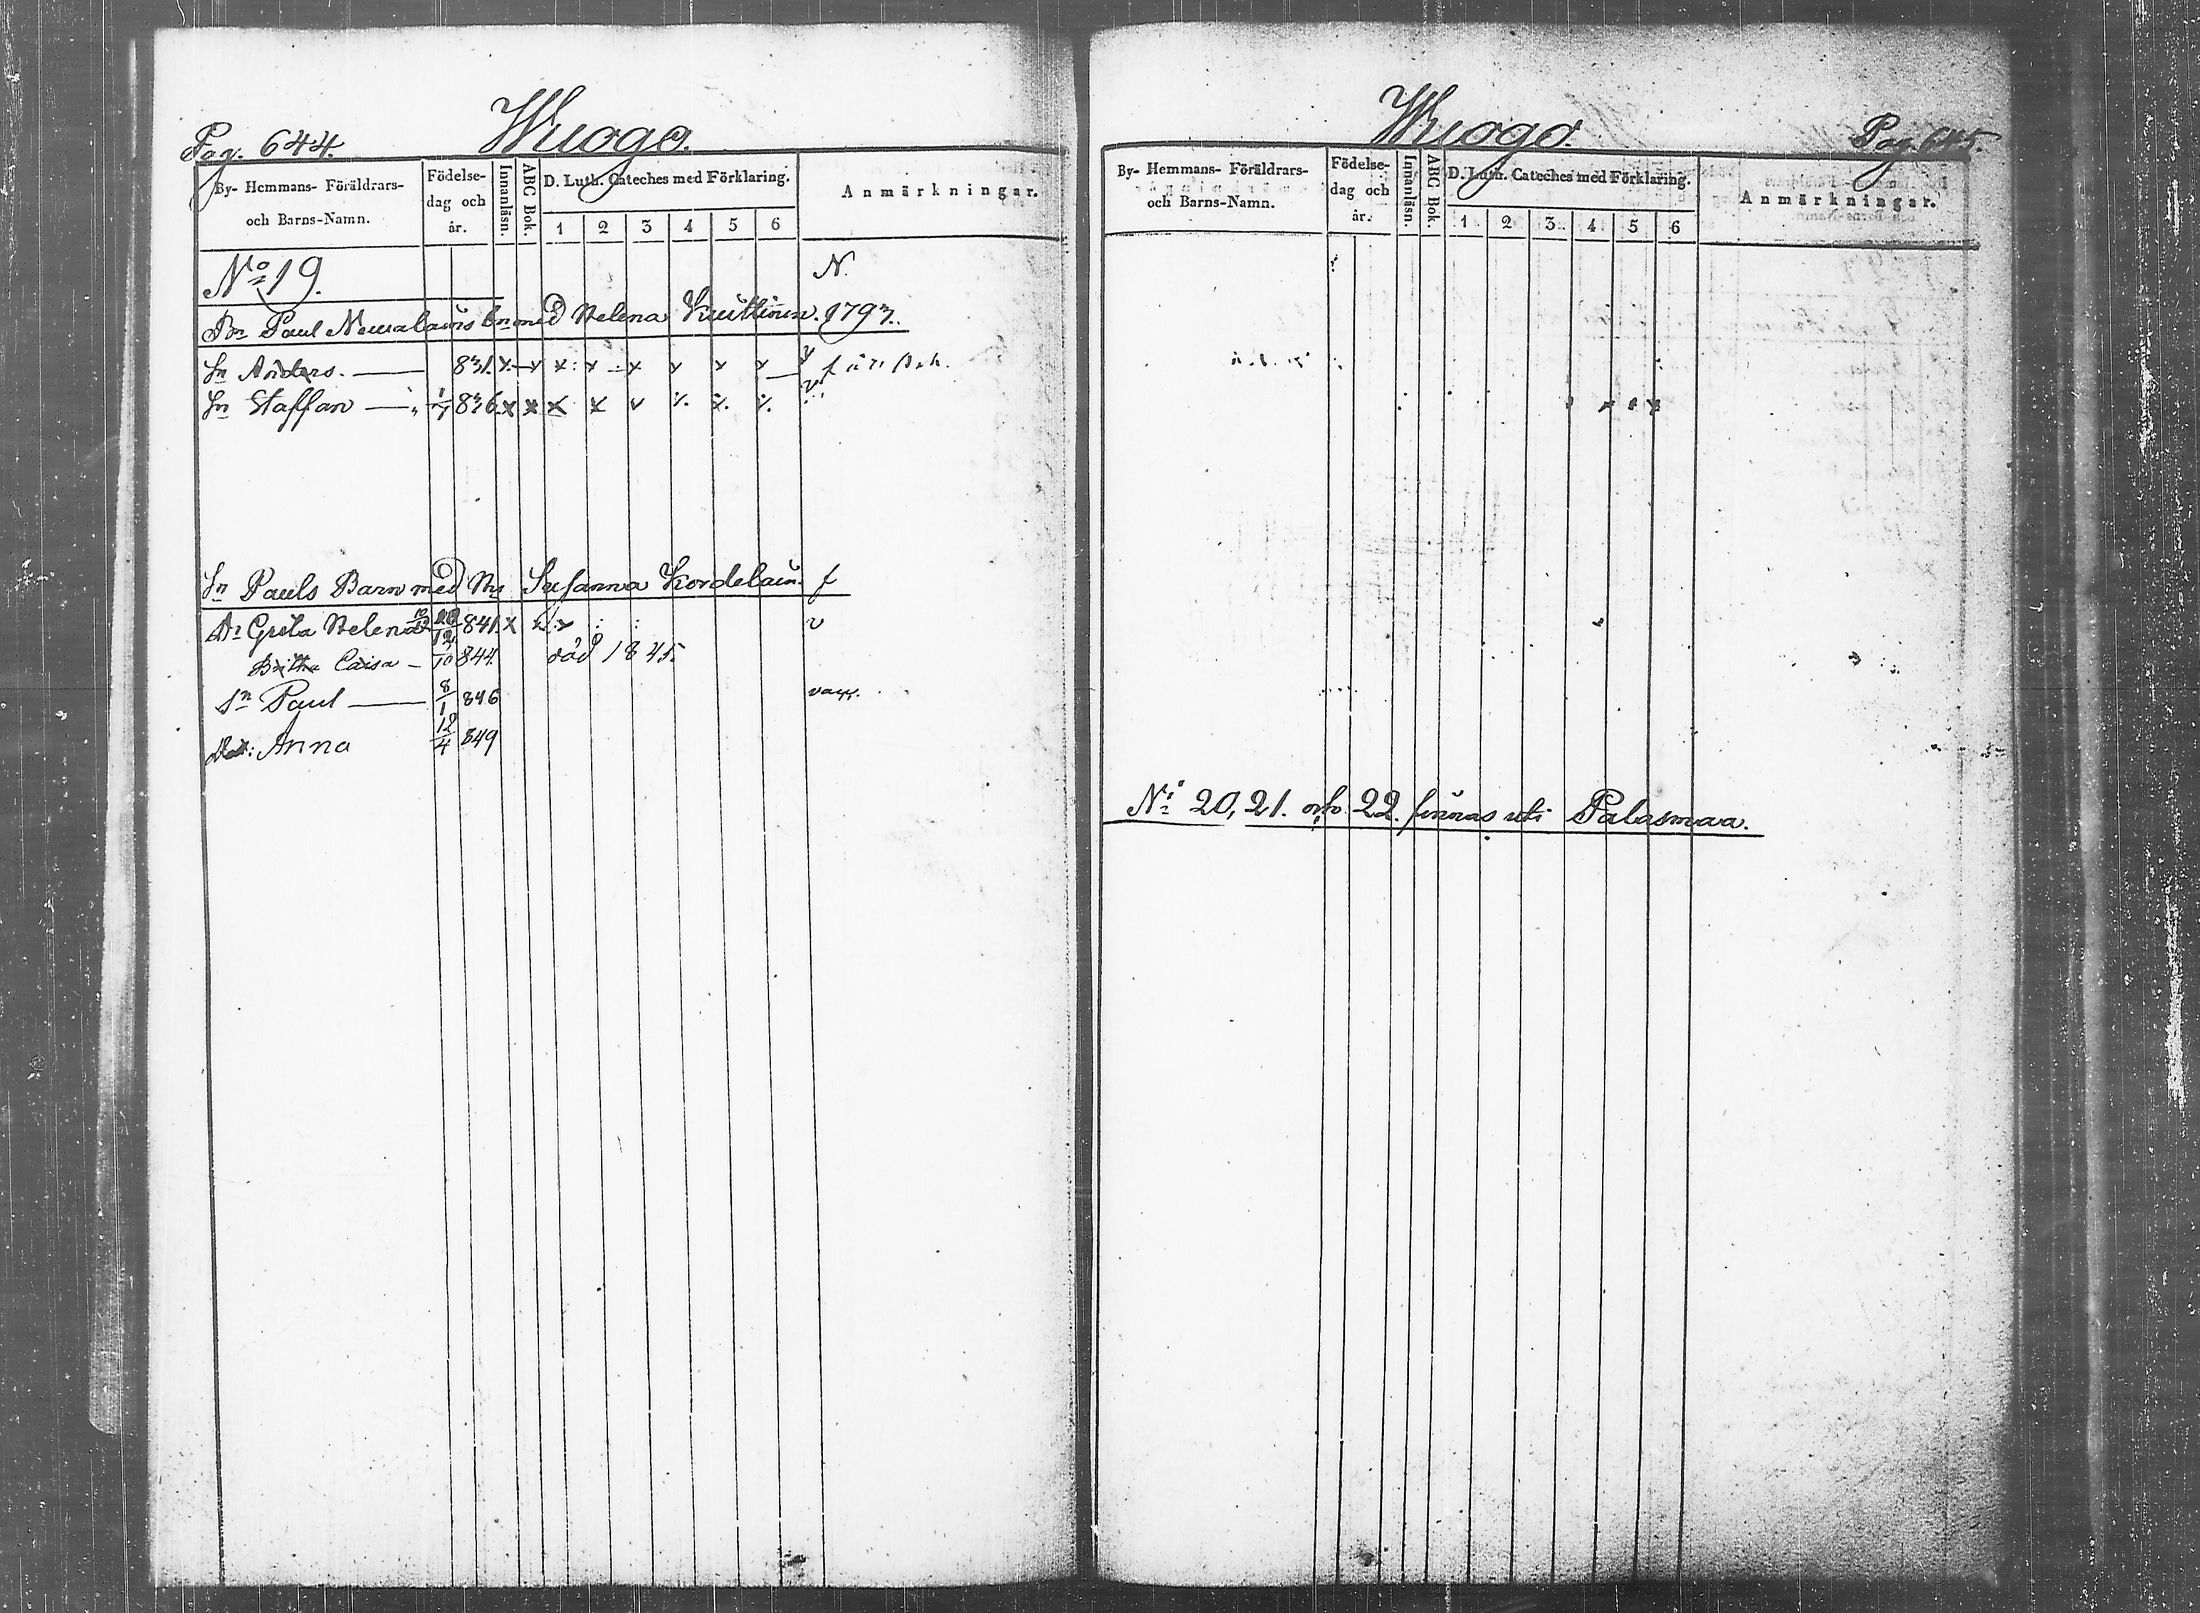 Pag. 644. Wuogo.
By- Hemmans- Föräldrars- och Barns-Namn. Födelse-dag och år. Innanläsn. ABC Bok. D. Luth. Cateches med Förklaring. 1 2 3 4 5 6 Anmärkningar.
No 19. N.
Bn Paul Neuvalains bn med Helena 1793.
Sn Anders. — 831. x x x x x x x
Sn Staffan — 1/7 836. x x x x v
Sn Pauls Barn med Hu Susanna Kordelain. f
Dr Greta Helena 12 841. x v
Britha Caisa — /10 844. död 1845.
Sn Paul — 8/1 846 vacc.
Dot: Anna 12/4 849
Wuogo. Pag. 645.
By- Hemmans- Föräldrars- och Barns-Namn. Födelse-dag och år. Innanläsn. ABC Bok. D. Luth. Cateches med Förklaring. 1 2 3 4 5 6 Anmärkningar.
No 20, 21. och 22. finnas uti Palasmaa.